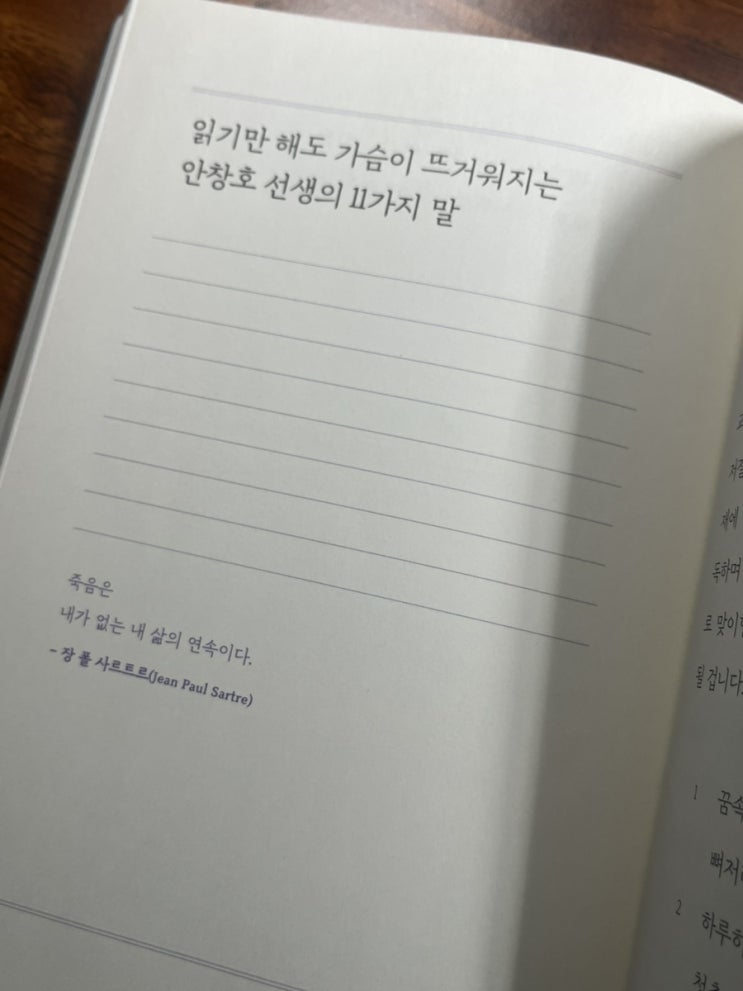 읽기만 해도 가슴이 뜨거워지는
안창호 선생의 11가지 말
죽음은
내가 없는 내 삶의 연속이다.
- 장 폴 사르트르(Jean Paul Sartre)
재에
독하며
로 맞이
될 겁니다
1 꿈속
뼈저
2 하루